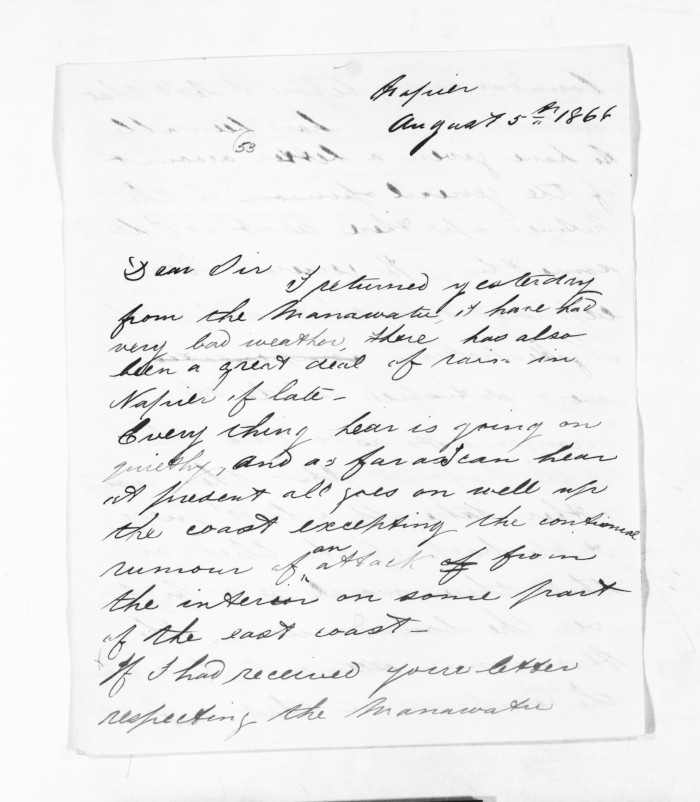 Napier
August 5th 1866
53
Dear Sir I returned yesterday
from the Manawatu, I have had
very bad weather, there has also
been a great deal of rain in
Napier of late -
Every thing hear is going on
quiethy, and as far as I can hear
at present all goes on well up
the coast excepting the continual
rumour of an attack of from
the interior on some part
of the east coast -
If I had received youre letter
respecting the Manawatu